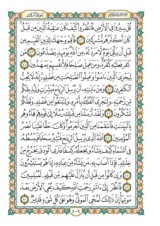 قل سيروا في الأرض فانظروا كيف كان عاقبة الذين من قبل
كان أكثرهم مشركين ٤٢ فأقم وجهك للدين القيم من قبل
أن يأتي يوم لا مرد له من الله يومئذ يصدعون ٤٣
من كفر فعليه كفره ومن عمل صالحا فلأنفسهم يمهدون ٤٤
ليجزي الذين آمنوا وعملوا الصالحات من فضله إنه لا يحب
الكافرين ٤٥ ومن آياته أن يرسل الرياح مبشرات وليذيقكم
من رحمته ولتجري الفلك بأمره ولتبتغوا من فضله ولعلكم
تشكرون ٤٦ ولقد أرسلنا من قبلك رسلا إلى قومهم فجاءوهم
بالبينات فانتقمنا من الذين أجرموا وكان حقا علينا نصر
المؤمنين ٤٧ الله الذي يرسل الرياح فتثير سحابا فيبسطه
في السماء كيف يشاء ويجعله كسفا فترى الودق يخرج من
خلاله فإذا أصاب به من يشاء من عباده إذا هم يستبشرون
٤٨ وإن كانوا من قبل أن ينزل عليهم من قبله لمبلسين
٤٩ فانظر إلى آثار رحمت الله كيف يحي الأرض بعد
موتها إن ذلك لمحي الموتى وهو على كل شيء قدير ٥٠
٤٠٩